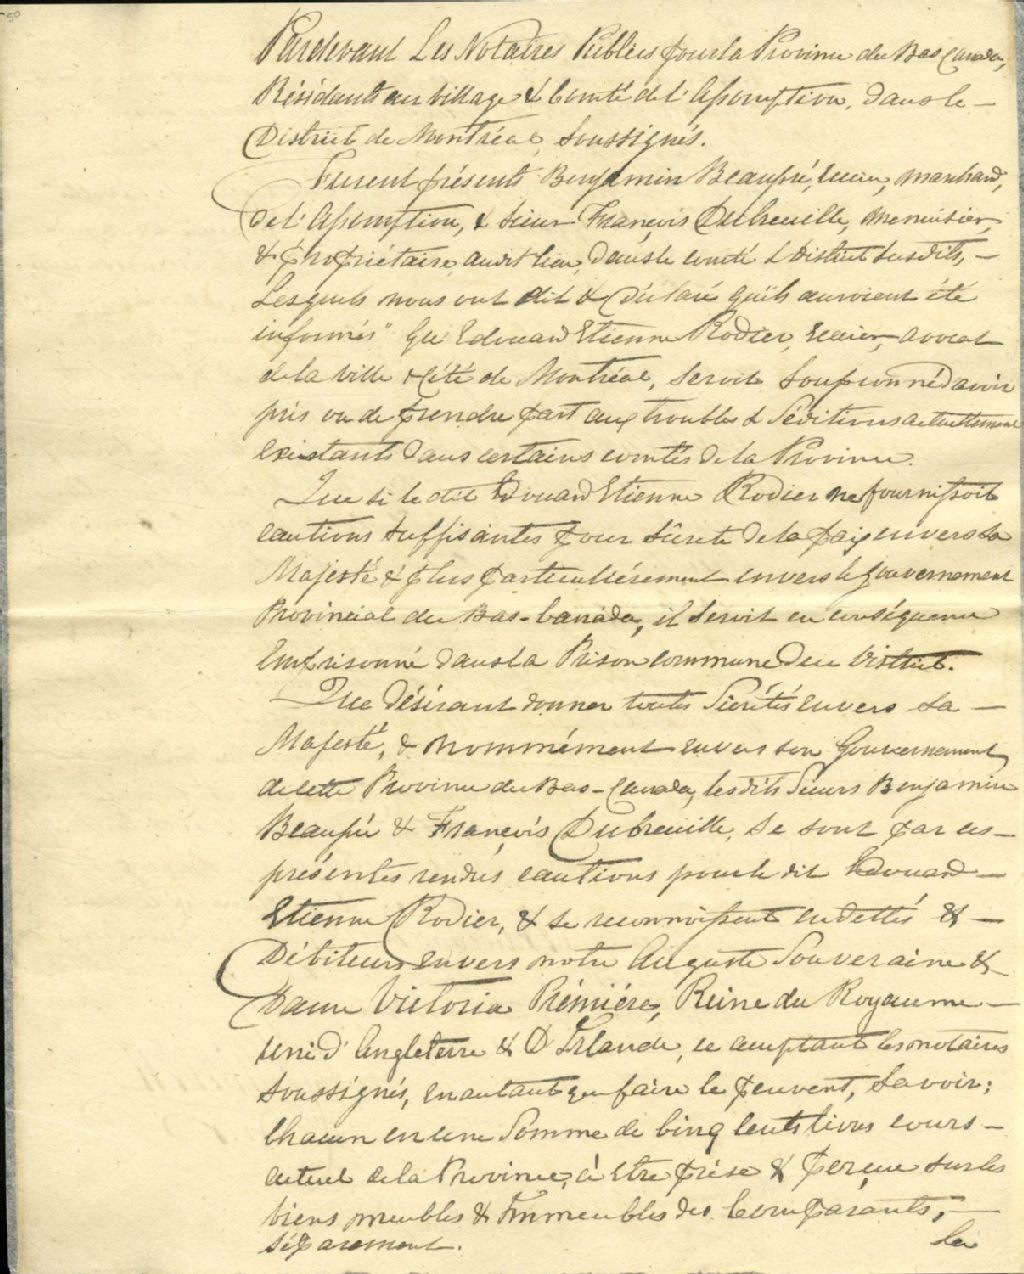 Pardevant Les Notaires Publics pour la Province du Bas Canada,
Résidants au village & Comté de L'Assomption, dans le —
District de Montréal, Soussignés.
Furent présents Benjamin Beaupré, Ecuier, marchand,
de L'Assomption, & Sieur François Dubreuille, menuisier,
& propriétaire, audit lieu, dans le comté & District susdits, —
Lesquels nous ont dit & déclaré qu'ils auroient été
informés" Qu'Edouard Etienne Rodier, Ecuier, avocat
de la ville & Cité de Montréal, seroit soupçonné d'avoir
pris ou de prendre part aux troubles & Séditions actuellement
existants dans certains comtés de la Province.
Que si le dit Edouard Etienne Rodier ne fournissoit
cautions suffisantes pour sûreté de la paix envers Sa
Majesté & plus particuliérement envers le gouvernement
Provincial du Bas-Canada, il seroit en conséquence
Emprisonné dans la Prison commune de ce District.
Que désirant donner toutes Sûrétés envers Sa —
Majesté, & nommément envers son Gouvernement
de cette Province du Bas-Canada, les dits Sieurs Benjamin
Beaupré & François Dubreuille, se sont par ces —
présentes rendus cautions pour le dit Edouard —
Etienne Rodier, & se reconnoissent endettés & —
Débiteurs envers notre Auguste Souveraine &
Dame Victoria Prémiére, Reine du Royaume —
uni d'Angleterre & D'Irlande, ce acceptant les notaires
soussignés, en autant que faire le peuvent, Savoir;
Chacun en une Somme de Cinq Cents livres cours —
actuel de la Province, à être prise & perçue sur les
biens meubles & Immeubles des Comparants, —
séparement.